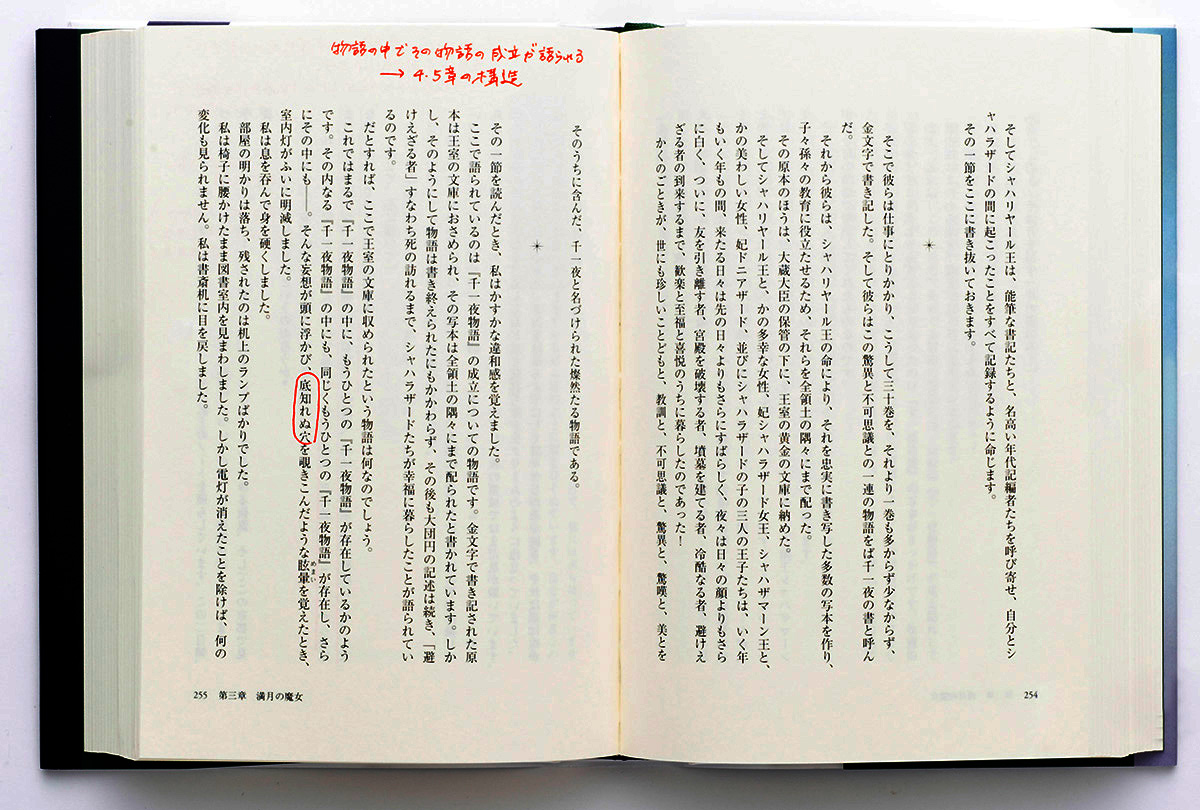 そしてシャハリヤール王は、能筆な書記たちと、名高い年代記編者たちを呼び寄せ、自分とシ
ャハラザードの間に起こったことをすべて記録するように命じます。
その一節をここに書き抜いておきます。
そこで彼らは仕事にとりかかり、こうして三十巻を、それより一巻も多からず少なからず、
金文字で書き記した。そして彼らはこの驚異と不可思議との一連の物語をば千一夜の書と呼ん
だ。
それから彼らは、シャハリヤール王の命により、それを忠実に書き写した多数の写本を作り、
子々孫々の教育に役立たせるため、それらを全領土の隅々にまで配った。
その原本のほうは、大蔵大臣の保管の下に、王室の黄金の文庫に納めた。
＊
そしてシャハリヤール王と、かの多幸な女性、妃シャハラザード女王、シャハザマーン王と、
かの美わしい女性、妃ドニアザード、並びにシャハラザードの子の三人の王子たちは、いく年
もいく年もの間、来たる日々は先の日々よりもさらにすばらしく、夜々は日々の顔よりもさら
に白く、ついに、友を引き離す者、宮殿を破壊する者、墳墓を建てる者、冷酷なる者、避けえ
ざる者の到来するまで、歓楽と至福と喜悦のうちに暮らしたのであった！
かくのごときが、世にも珍しいことどもと、教訓と、不可思議と、驚異と、驚嘆と、美とを
254
物語の中でその物語の成立が語られる
→ 4・5章の構造
そのうちに含んだ、千一夜と名づけられた燦然たる物語である。
＊
その一節を読んだとき、私はかすかな違和感を覚えました。
ここで語られているのは『千一夜物語』の成立についての物語です。金文字で書き記された原
本は王室の文庫におさめられ、その写本は全領土の隅々にまで配られたと書かれています。しか
し、そのようにして物語は書き終えられたにもかかわらず、その後も大団円の記述は続き、「避
けえざる者」すなわち死の訪れるまで、シャハラザードたちが幸福に暮らしたことが語られてい
るのです。
だとすれば、ここで王室の文庫に収められたという物語は何なのでしょう。
これではまるで『千一夜物語』の中に、もうひとつの『千一夜物語』が存在しているかのよう
です。その内なる『千一夜物語』の中にも、同じくもうひとつの『千一夜物語』が存在し、さら
にその中にも――。そんな妄想が頭に浮かび、底知れぬ穴を覗きこんだような眩暈を覚えたとき、
めまい
室内灯がふいに明滅しました。
私は息を呑んで身を硬くしました。
部屋の明かりは落ち、残されたのは机上のランプばかりでした。
私は椅子に腰かけたまま図書室内を見まわしました。しかし電灯が消えたことを除けば、何の
変化も見られません。私は書斎机に目を戻しました。
255 第三章 満月の魔女